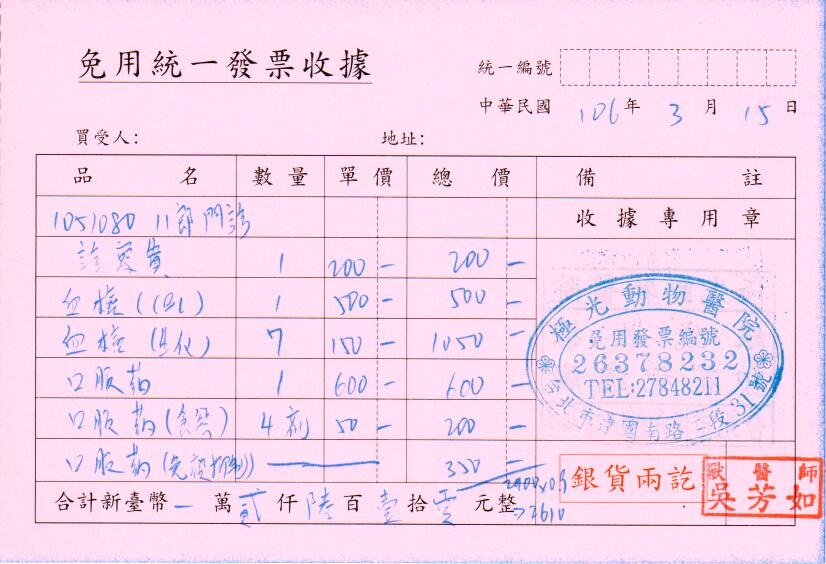 免用統一發票收據
統一編號
中華民國 106 年 3 月 15 日
買受人: 地址:
品名 數量 單價 總價 備註
1051080 11郎門診 收據專用章
診察費 1 200 - 200 -
血檢 (CBC) 1 500 - 500 -
血檢 (生化) 7 150 - 1050 -
口服藥 1 600 - 600 -
口服藥 4 50 - 200 -
口服藥 350 -
2900x0.9
合計新臺幣 - 萬 貳 仟 陸 百 壹 拾 零 元整 ⇒2610
極光動物醫院
免用發票編號
26378232
TEL:27848211
台北市建國南路三段31號
銀貨兩訖
獸醫師
吳芳如